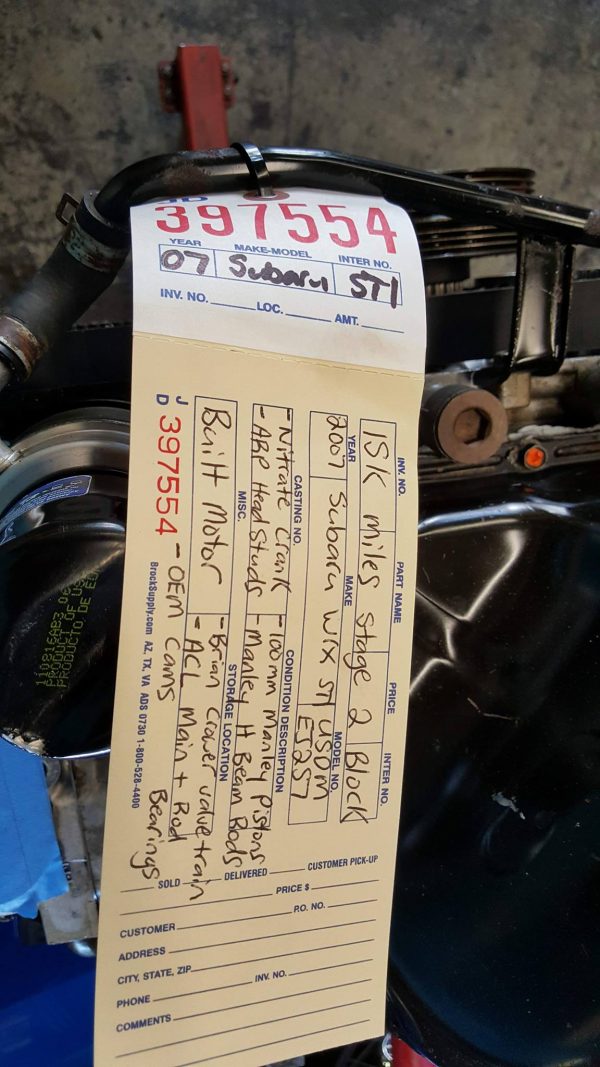 JD
397554
YEAR MAKE-MODEL INTER NO.
07 Subaru STI
INV. NO. LOC. AMT.
INV. NO. PART NAME PRICE INTER NO.
15K miles Stage 2 Block
YEAR MAKE MODEL NO.
2007 Subaru WRX STI USDM EJ257
CASTING NO. CONDITION DESCRIPTION
- Nitrate Crank - 100mm Manley Pistons
- ARP Head Studs - Manley H Beam Rods
MISC. STORAGE LOCATION
Built Motor - Brian Crower valve train
- ACL Main + Rod Bearings
JD 397554 - OEM Cams
BrockSupply.com AZ, TX, VA ADS 0730 1-800-528-4400
SOLD DELIVERED CUSTOMER PICK-UP
PRICE $
P.O. NO.
CUSTOMER
ADDRESS
CITY, STATE, ZIP
PHONE INV. NO.
COMMENTS
PRODUCT OF
PRODUCTO DE